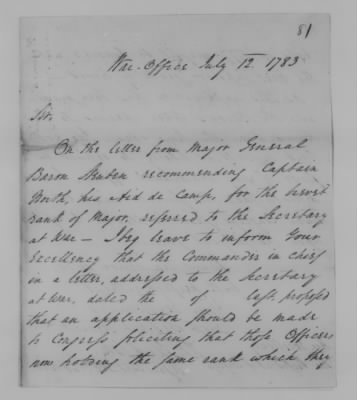 81
War-Office July 12. 1783
Sir.
On the letter from Major General
Baron Steuben recommending Captain
North, his Aid de Camp, for the brevet
rank of Major, referred to the Secretary
at War — I beg leave to inform Your
Excellency that the Commander in chief
in a letter, addressed to the Secretary
at War, dated the of last, proposed
that an application should be made
to Congress soliciting that those Officers
now holding the same rank which they